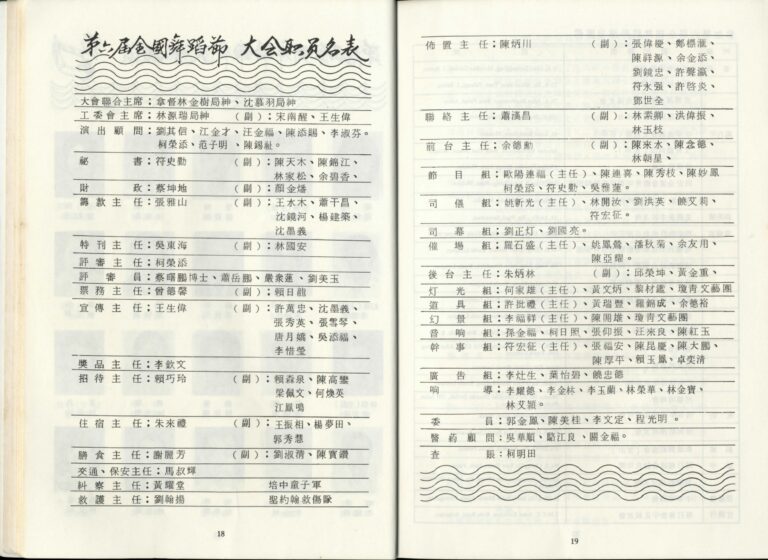 第六届全國舞蹈節 大会职员名表
大會聯合主席；拿督林金樹局紳、沈慕羽局紳
工委會主席；林源瑞局紳 （副）；宋南醒、王生偉
演出顧問；劉其信、江金才、汪金福、陳添賜、李淑芬。
柯榮添、范子明、陳錫祉。
秘書；符史勤 （副）；陳天木、陳錦江、
林家松、余碧香、
財政；蔡坤地 （副）；顏金燔
籌款主任；張雅山 （副）；王水木、蕭干昌、
沈鏡河、楊建築、
沈墨義
特刊主任；吳東海 （副）；林國安
評審主任；柯榮添
評審員；蔡曙鵬博士、蕭岳鵬、嚴衆蓮、劉美玉
票務主任；曾德馨 （副）；賴日龍
宣傳主任；王生偉 （副）；許萬忠、沈墨義、
張秀英、張雪琴、
唐月嬌、吳添福、
李惜瑩
獎品主任；李欽文
招待主任；賴巧玲 （副）；賴森泉、陳高鑾
梁佩文、何煥英
江鳳鳴
住宿主任；朱來禮 （副）；王振相、楊夢田、
郭秀慧
膳食主任；謝麗芳 （副）；劉淑清、陳寶讚
交通、保安主任；馬叔輝
糾察主任；黃耀堂 培中童子軍
救護主任；劉翰揚 聖約翰救傷隊
18
佈置主任；陳炳川 （副）；張偉慶、鄭標滙、
陳祥源、余金添、
劉鏡忠、許聲瀛、
符永强、許啓炎、
鄧世全
聯絡主任；蕭漢昌 （副）；林素卿、洪偉振、
林玉枝
前台主任；余德勳 （副）；陳來水、陳念德、
林朝星、
節目組；歐陽連福（主任）、陳連喜、陳秀枝、陳妙鳳
柯榮添、符史勤、吳雅蓮。
司儀組；姚新光（主任）、林開汝、劉洪英、饒艾莉、
符宏征。
司幕組；劉正灯、劉國亮。
催場組；羅石盛（主任）、姚鳳鶯、潘秋菊、余友用、
陳亞耀。
後台主任；朱炳林 （副）；邱榮坤、黃金重、
灯光組；何家雄（主任）、黃文炳、黎材鑑、瓊青文藝團
道具組；許批禮（主任）、黃瑞豐、羅錦成、余德裕
幻景組；李福祥（主任）、陳開雄、瓊青文藝團
音响組；孫金福、柯日照、張仰振、汪來良、陳紅玉
幹事組；符宏征（主任）、張福安、陳昆慶、陳大鵬、
陳厚平、賴玉鳳、卓奕清
廣告組；李灶生、葉怡碧、饒忠德
响導；李耀德、李金林、李玉蘭、林榮華、林金寶、
林艾穎。
委員；郭金鳳、陳美桂、李文定、程光明。
醫药顧問；吳華順、駱江良、關金福。
查賬；柯明田
19